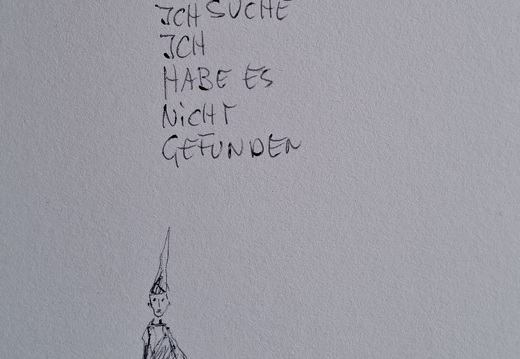 ICH SUCHE
ICH
HABE ES
NiCHT
GEFUNDEN